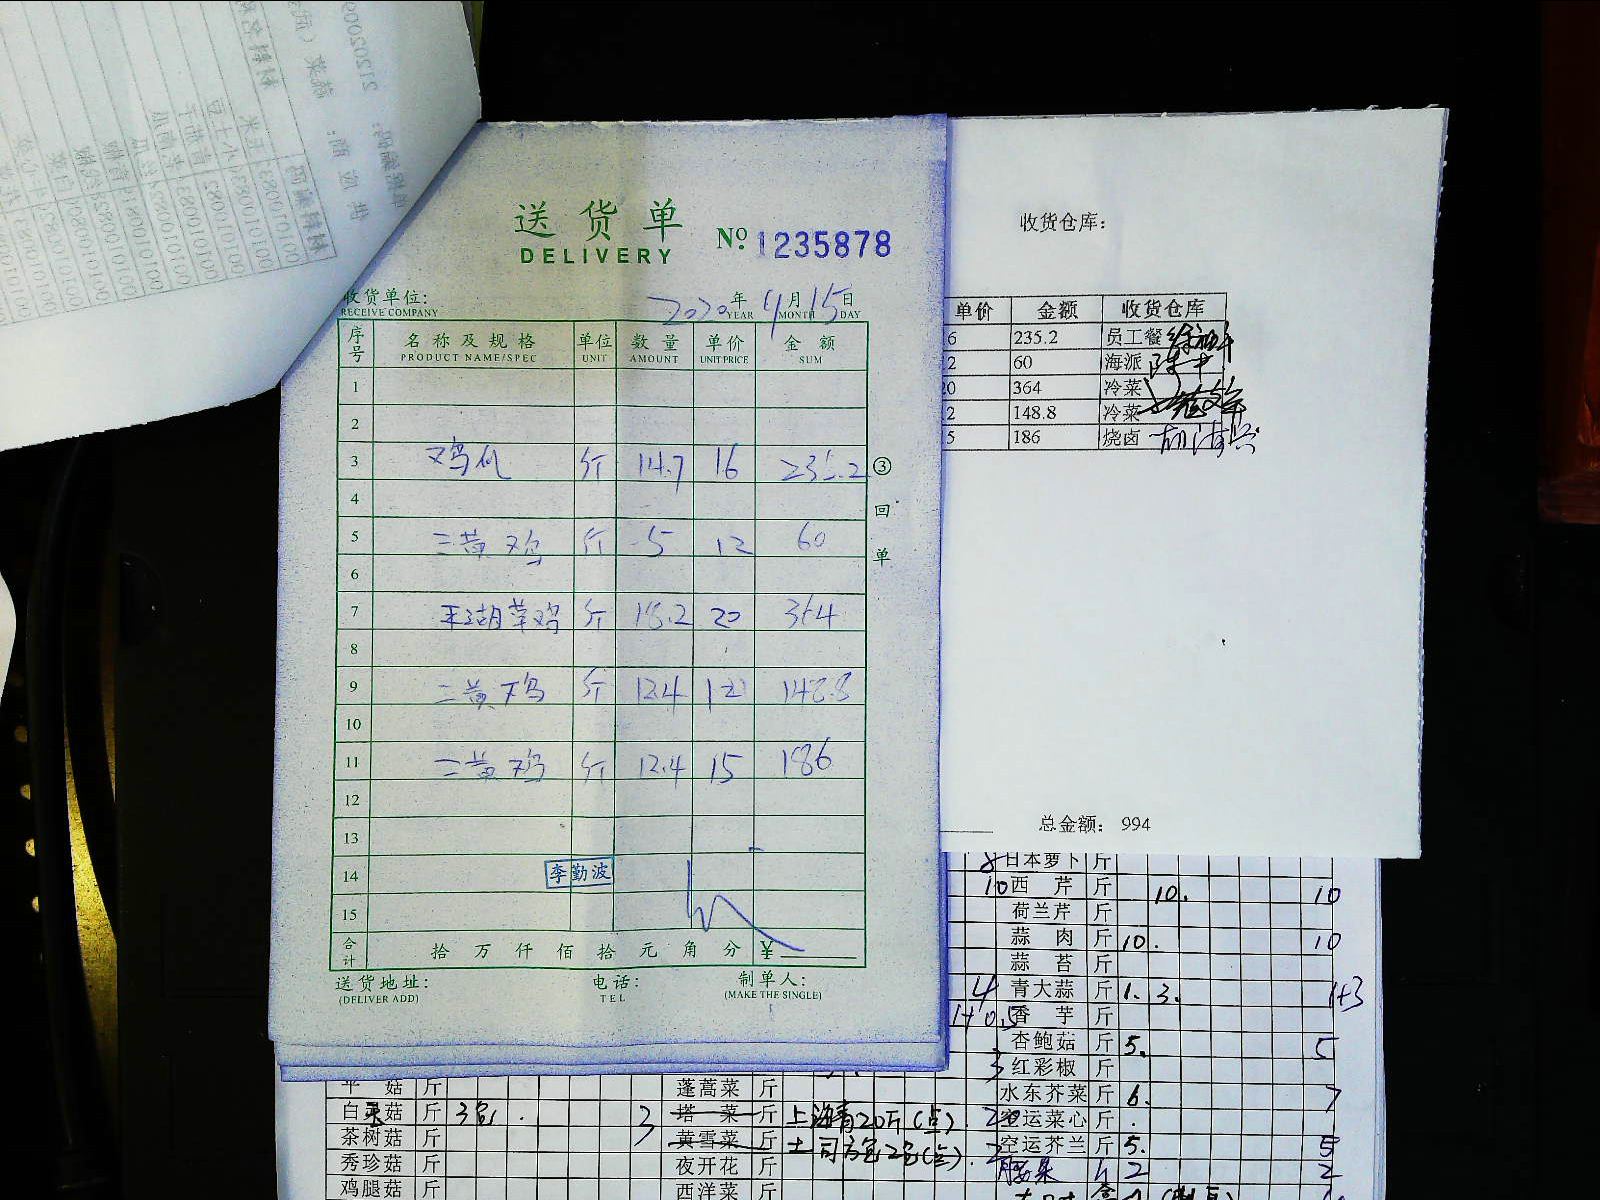 送货单
DELIVERY
No. 1235878
收货单位:
RECEIVE COMPANY
2020年4月15日
YEAR MONTH DAY
序号 名称及规格 单位 数量 单价 金额
PRODUCT NAME/SPEC UNIT AMOUNT UNIT PRICE SUM
1
2
3 斤 14.7 16 235.2
4
5 三黄鸡 斤 5 12 60
6
7 斤 18.2 20 364
8
9 三黄鸡 斤 12.4 12 148.8
10
11 三黄鸡 斤 12.4 15 186
12
13
14 李勤波
15
合计 拾 万 仟 佰 拾 元 角 分 ¥
送货地址: 电话: 制单人:
(DELIVER ADD) TEL (MAKE THE SINGLE)
③回单
收货仓库:
单价 金额 收货仓库
6 235.2 员工餐
2 60 海派
20 364 冷菜
2 148.8 冷菜
5 186 烧卤
总金额: 994
8 日本萝卜 斤
10 西芹 斤 10. 10
荷兰芹 斤
蒜肉 斤 10. 10
蒜苔 斤
4 青大蒜 斤 1. 3. 1+3
1+0.5 香芋 斤
杏鲍菇 斤 5. 5
3 红彩椒 斤
水东芥菜 斤 6. 7
空运菜心 斤
空运芥兰 斤 5. 5
腰果 2 2
平菇 斤 蓬蒿菜 斤
白玉菇 斤 3包. 3 塔菜 斤 上海青20斤(点)
茶树菇 斤 黄雪菜 斤 土司方包2包(点)
秀珍菇 斤 夜开花 斤
鸡腿菇 斤 西洋菜 斤